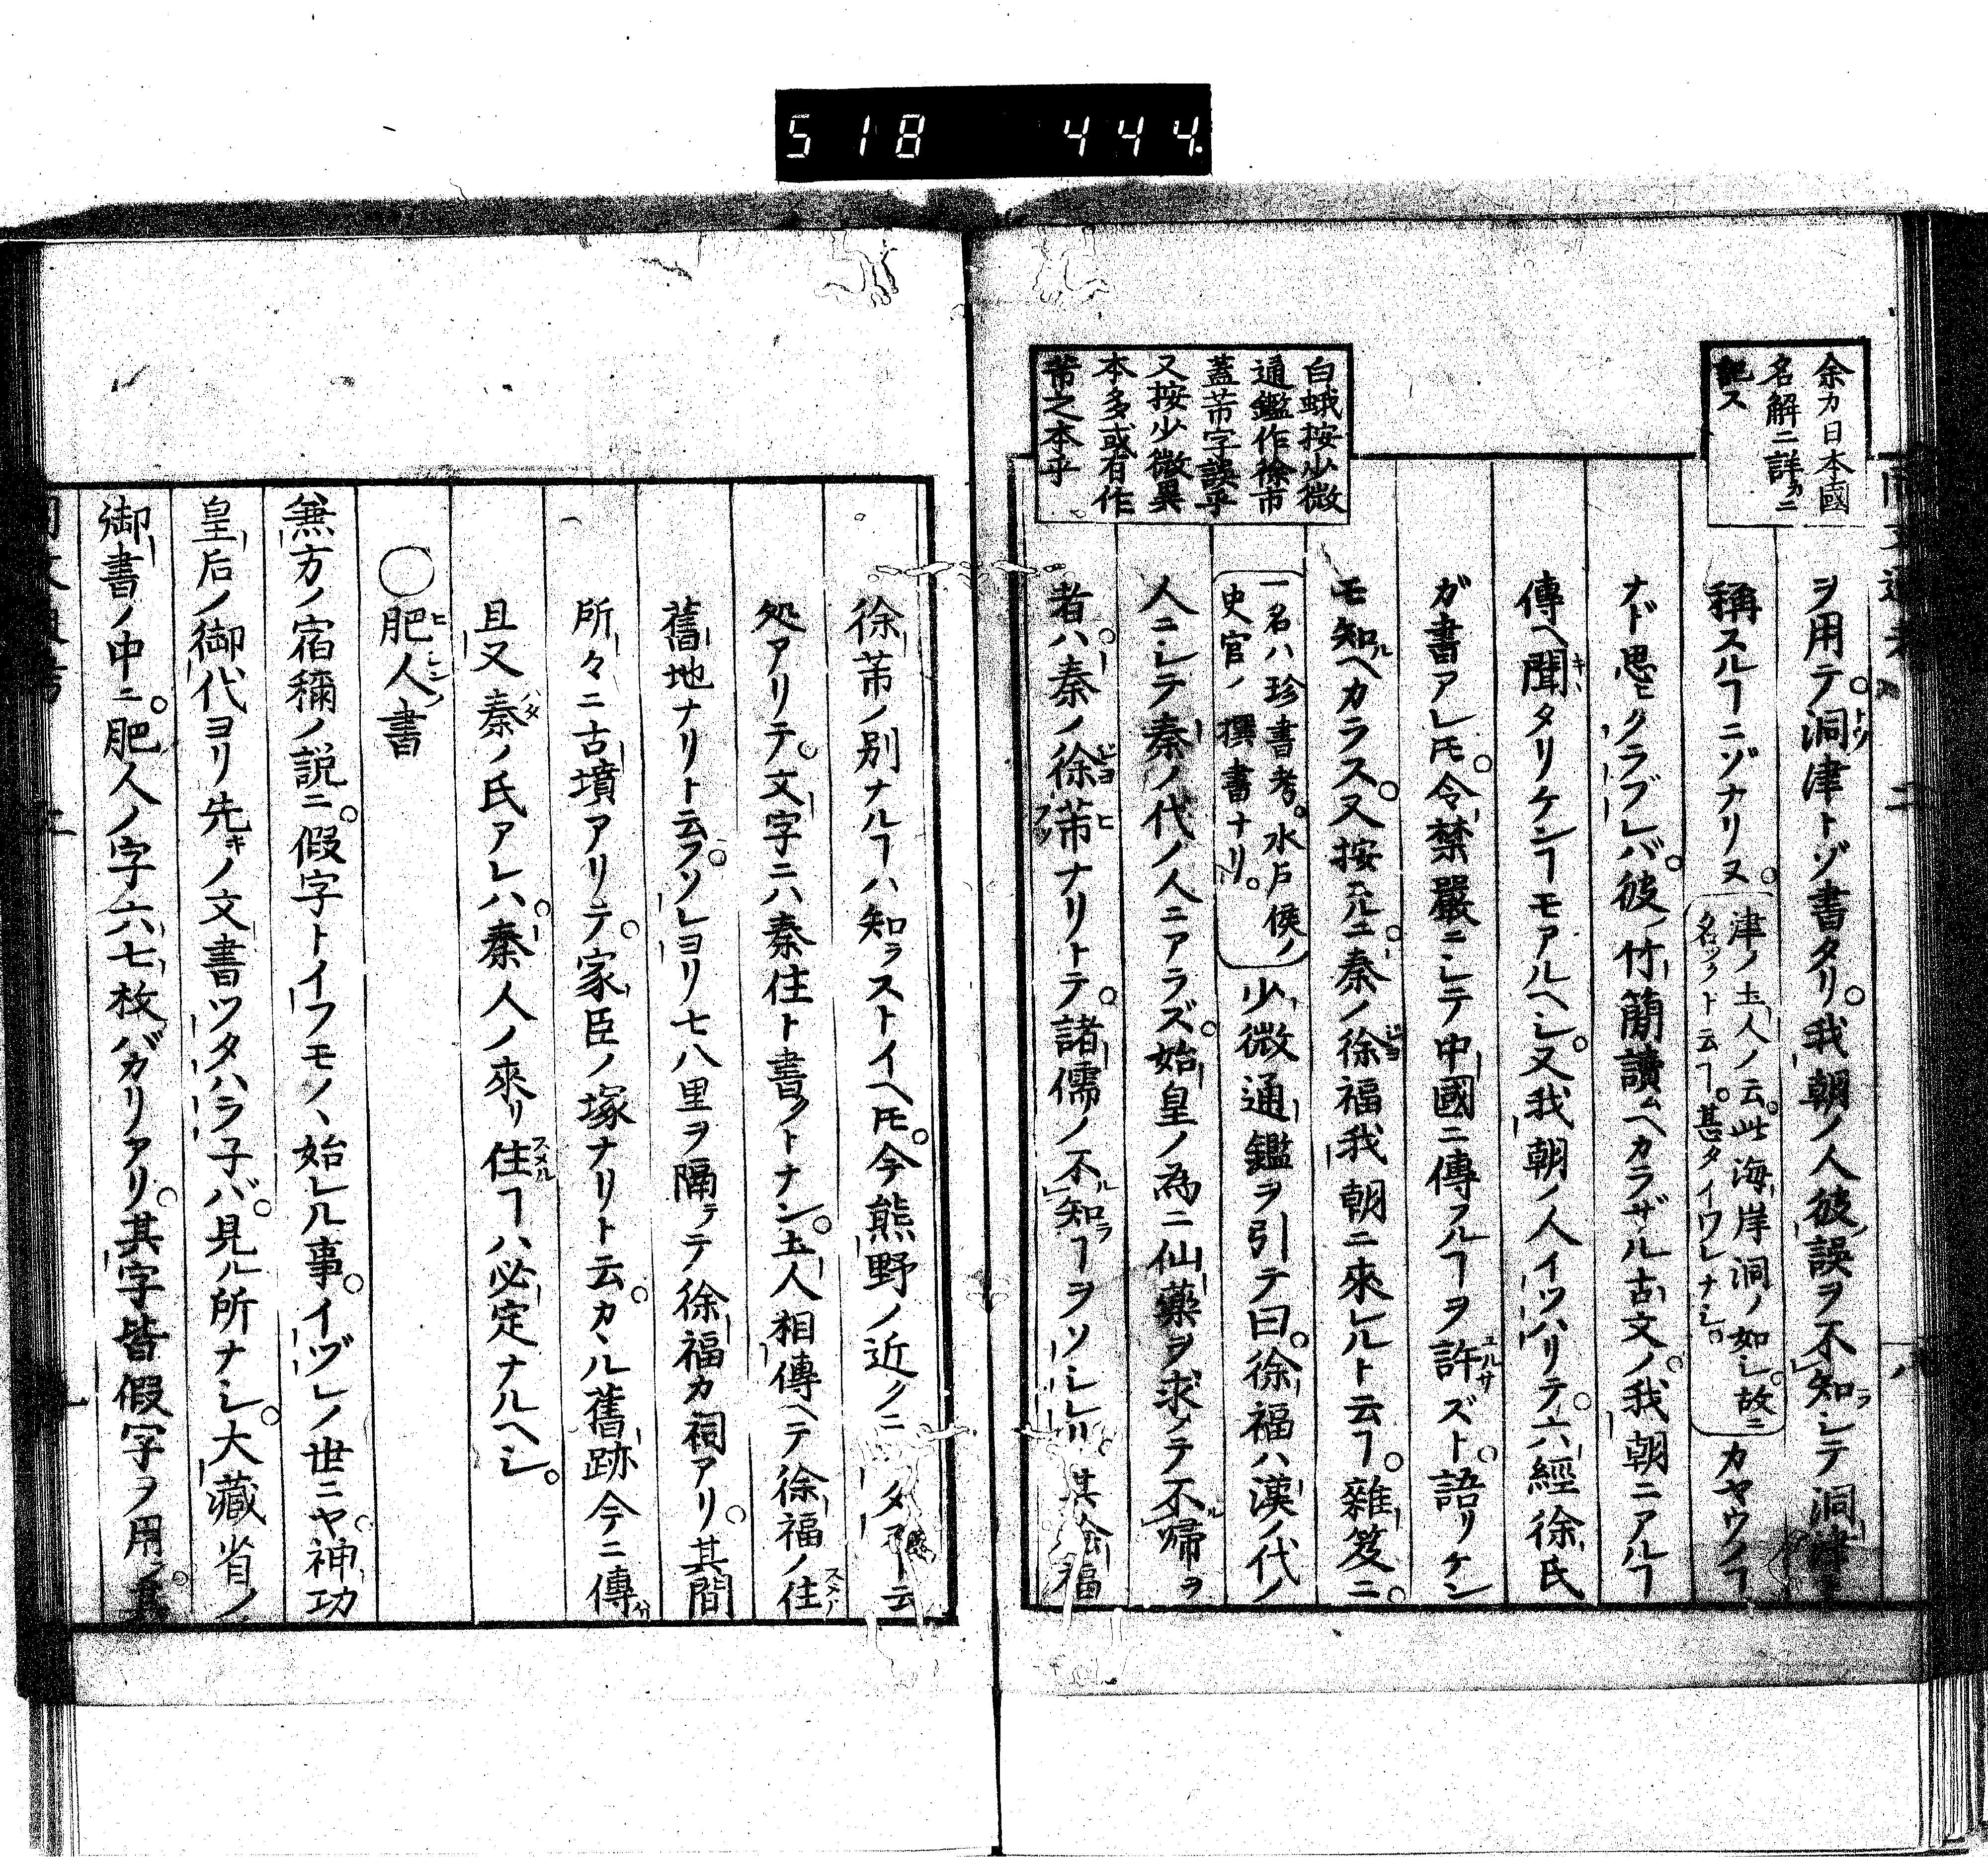 518 444.
余カ日本國
名解ニ詳カニ
記ス
白蛾按少微
通鑑作徐市
蓋芾字誤乎
又按少微異
本多或有作
芾之本乎
ヲ用テ。洞津トゾ書タリ。我朝ノ人彼ノ誤ヲ不知シテ洞津ト
稱スルヿニゾナリヌ。
津ノ土人ノ云。此海岸洞ノ如シ。故ニ
名ツクト云ヿ。甚タイワレナシ。
カヤウノヿ
ナド思ヒクラブレバ。彼ノ竹簡讀ムヘカラザル古文ノ。我朝ニアルヿ
傳ヘ聞キタリケンヿモアルヘシ。又我朝ノ人イツハリテ。六經徐氏
ガ書アレ𪜈。令禁嚴ニシテ中國ニ傳フルヿヲ許ズト。語リケン
モ知ルヘカラス。又按スルニ。秦ノ徐福我朝ニ來レルト云ヿ。雜笈ニ。
一名ハ珍書考。水戶侯ノ
史官ノ撰書ナリ。
少微通鑑ヲ引テ曰。徐福ハ漢ノ代ノ
人ニシテ秦ノ代ノ人ニアラズ。始皇ノ為ニ仙藥ヲ求メテ不歸ヲ
者ハ。秦ノ徐芾ナリトテ。諸儒ノ不知ヿヲソシレリ。其余福
徐芾ノ別ナルヿハ知ラストイヘ𪜈。今熊野ノ近クニ
処アリテ。文字ニハ秦住ト書クトナン。土人相傳ヘテ徐福ノ住
舊地ナリト云フ。ソレヨリ七八里ヲ隔テテ徐福カ祠アリ。其間
所々ニ古墳アリテ。家臣ノ塚ナリト云。カヽル舊跡今ニ傳
且又秦ノ氏アレハ。秦人ノ來リ住ヿハ必定ナルヘシ。
〇肥人書
無方ノ宿禰ノ說ニ。假字トイフモノヽ始レル事。イヅレノ世ニヤ。神功
皇后ノ御代ヨリ先キノ文書ツタハラ子バ。見ル所ナシ。大藏省ノ
御書ノ中ニ。肥人ノ字六七枚バガリアリ。其字皆假字ヲ用フ。其